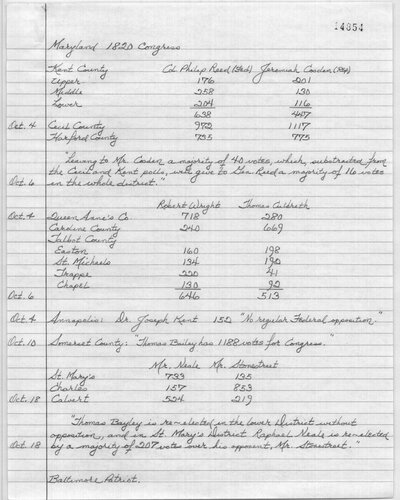 14854
Maryland 1820 Congress
Kent County Col. Philip Reed (Fed) Jeremiah Cosden (Rep)
Upper 176 201
Middle 258 130
Lower 204 116
638 447
Oct. 4 Cecil County 972 1117
Harford County 735 775
"Leaving to Mr. Cosden a majority of 40 votes, which, substracted from
the Cecil and Kent polls, will give to Gen. Reed a majority of 16 votes
Oct. 6 in the whole district."
Robert Wright Thomas Culbreth
Oct. 4 Queen Anne's Co 718 280
Caroline County 240 669
Talbot County
Easton 160 198
St. Michaels 134 190
Trappe 220 41
Chapel 130 92
Oct. 6 646 513
Oct. 4 Annapolis: Dr. Joseph Kent 152 "No regular Federal opposition."
Oct. 10 Somerset County: "Thomas Bailey has 1188 votes for Congress."
Mr. Neale Mr. Stonestreet
St. Mary's 733 135
Charles 157 853
Oct. 18 Calvert 524 219
"Thomas Bayley is re-elected in the lower District without
opposition, and in St. Mary's District Raphael Neale is re-elected
Oct. 18 by a majority of 207 votes over his opponent, Mr. Stonestreet."
Baltimore Patriot.